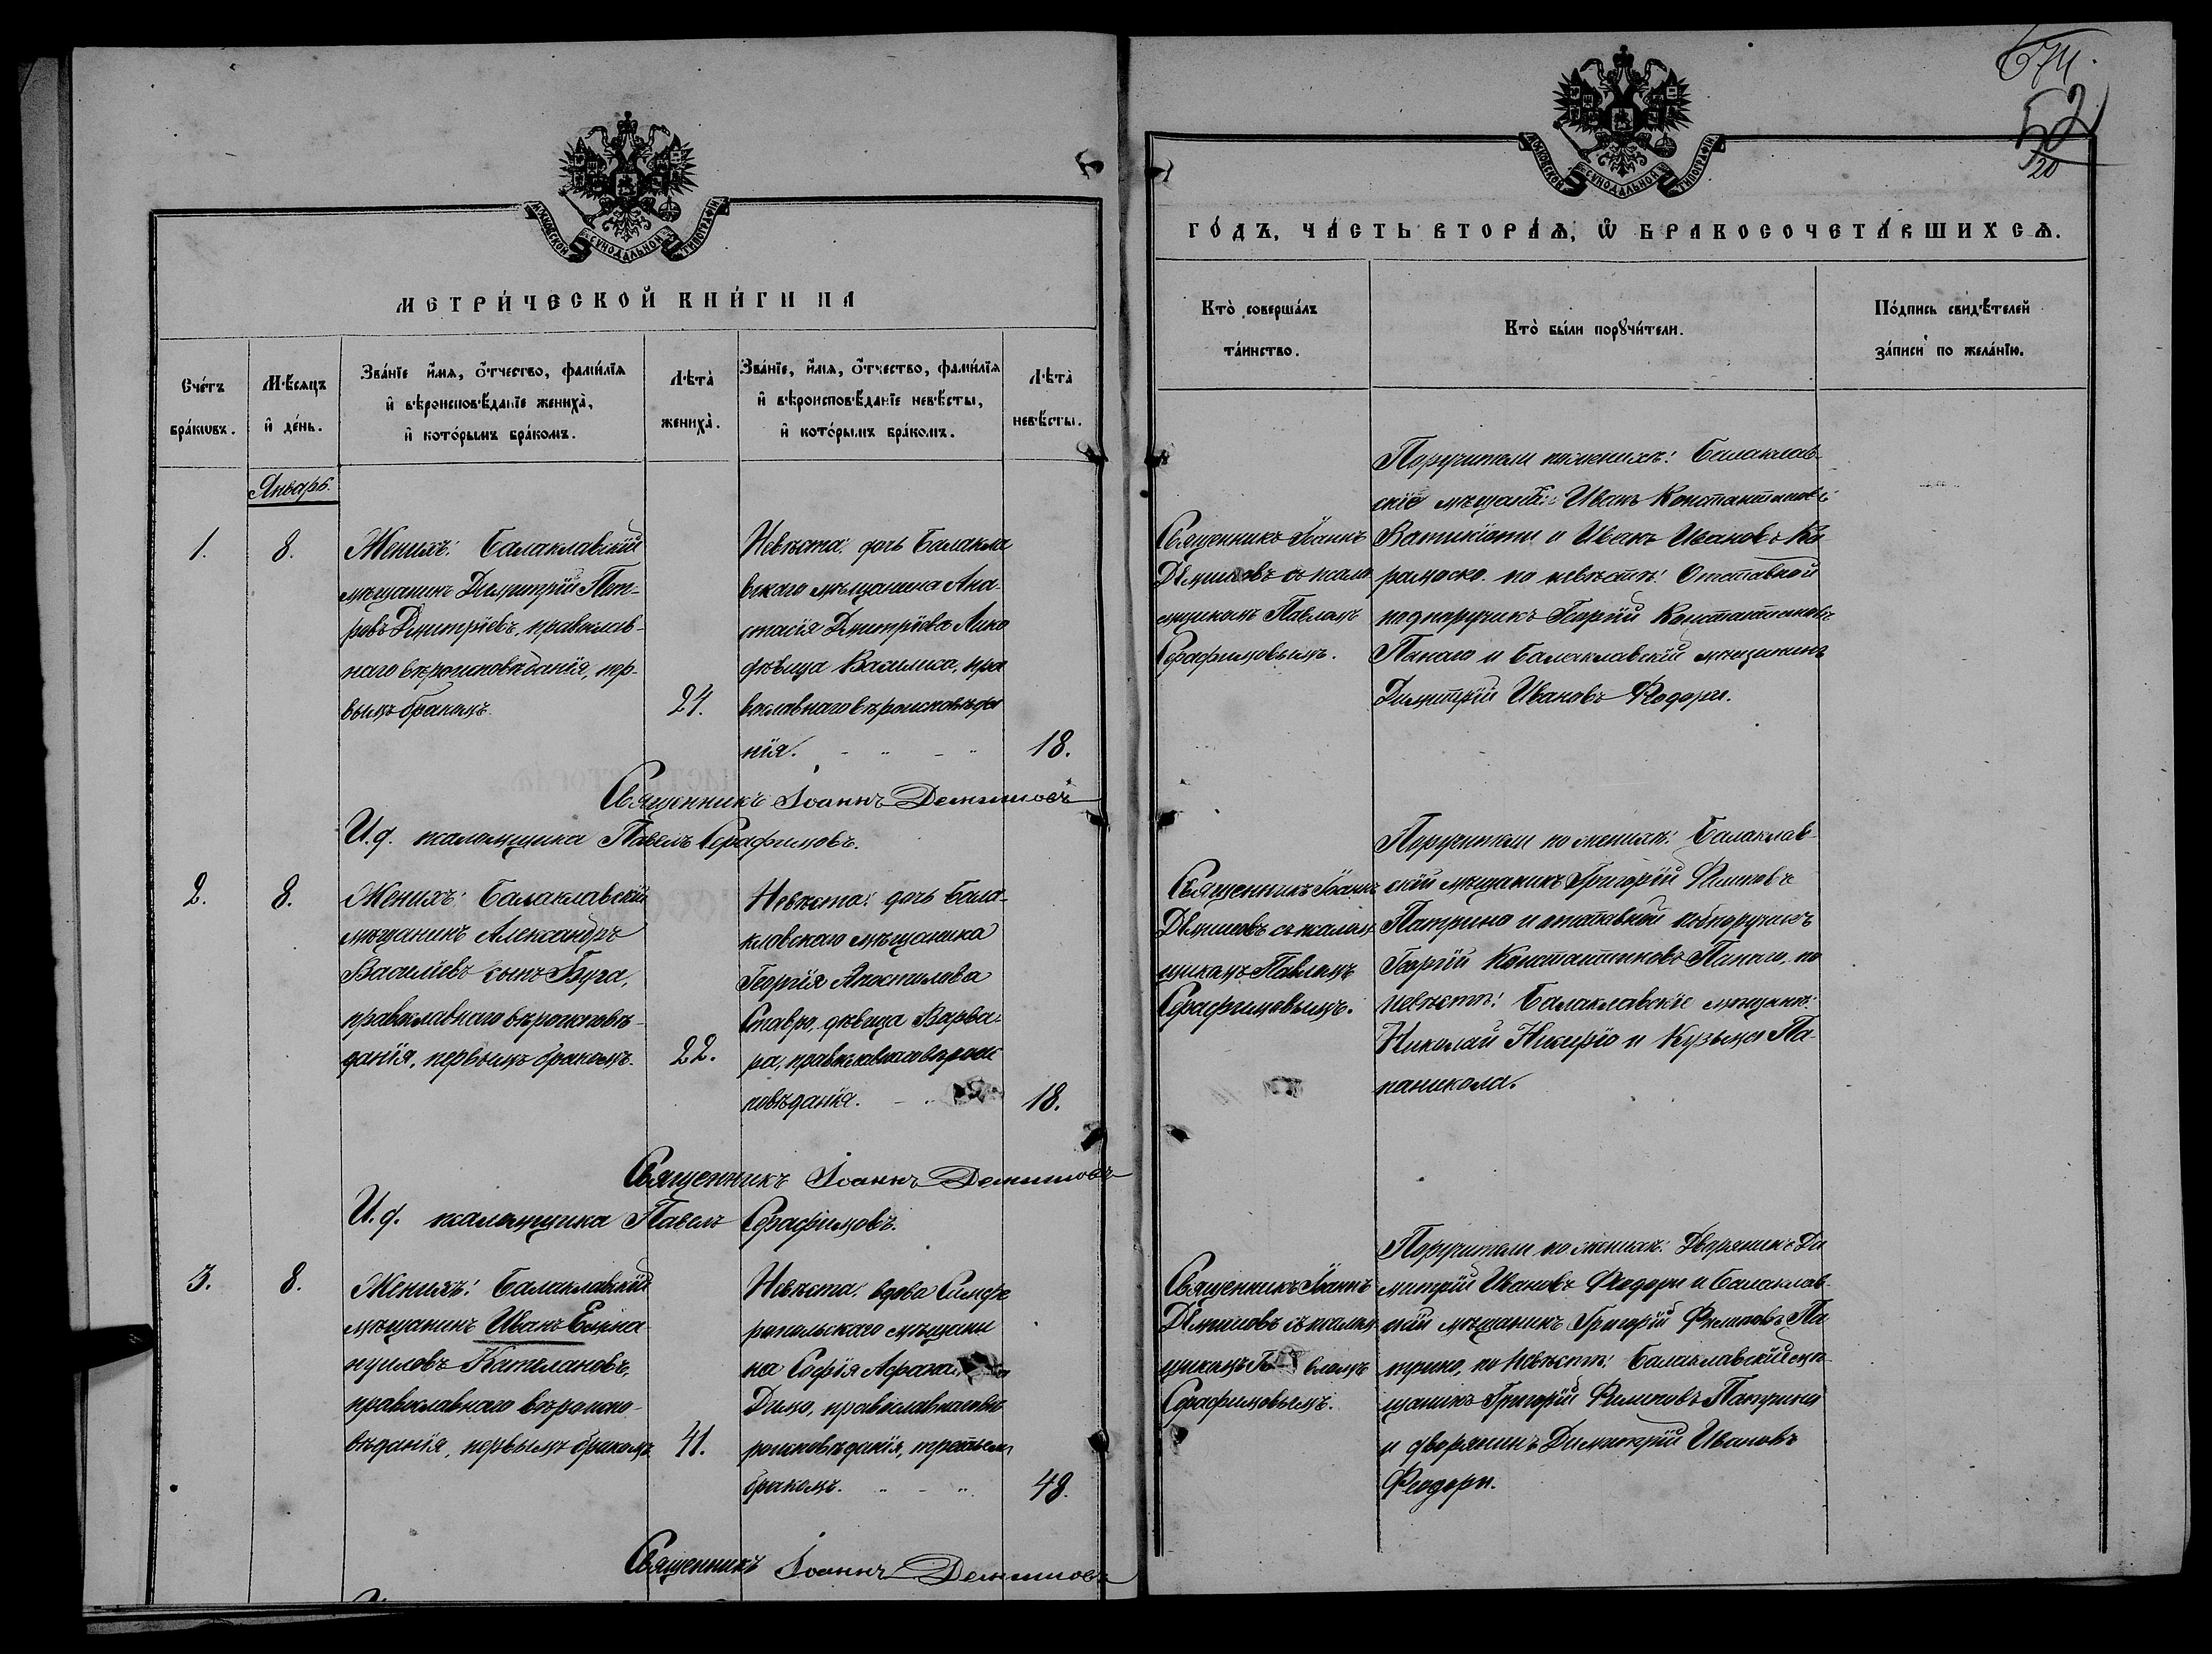 МЕТРИ́ЧЕСКОЙ КНИ́ГИ НА
Сче́тъ бра́кѡвъ.
Мѣ́сяцъ и҆ де́нь.
Зва́нїе и҆́мя, ѻ҆́тчество, фами́лїя
и҆ вѣроисповѣ́данїе жениха̀,
и҆ кото́рымъ бра́комъ.
Лѣта̀ жениха̀.
Зва́нїе, и҆́мя, ѻ҆́тчество, фами́лїя
и҆ вѣроисповѣ́данїе невѣ́сты,
и҆ кото́рымъ бра́комъ.
Лѣта̀ невѣ́сты.
Январь.
1.
8.
Женихъ: Балаклавскій
мѣщанинъ Димитрій Пет-
ровъ Дмитріевъ, православ-
наго вѣроисповѣданія, пер-
вымъ бракомъ
24.
Невѣста: дочь Балакла
вскаго мѣщанина Ана-
стасія Дмитріева Лико
дѣвица Василиса, пра
вославнаго вѣроисповѣда
нія.
18.
Священникъ Іоаннъ Демишовъ
И.д. псаломщика Павелъ Серафимовъ.
2.
8.
Женихъ: Балаклавскій
мѣщанинъ Александръ
Василіевъ сынъ Буга,
православнаго вѣроисповѣ-
данія, первымъ бракомъ.
22.
Невѣста: дочь Бала-
клавскаго мѣщанина
Георгія Апостолова
Ставро, дѣвица Варва-
ра, православнаго вѣроис
повѣданія.
18.
Священникъ Іоаннъ Демишовъ
И.д. псаломщика Павелъ Серафимовъ.
3.
8.
Женихъ: Балаклавскій
мѣщанинъ Иванъ Емма-
нуиловъ Каталановъ,
православнаго вѣроиспо-
вѣданія, первымъ бракомъ.
41.
Невѣста: вдова Симфе
ропольскаго мѣщани
на Софія
Димо, православнаго вѣ
роисповѣданія, третьимъ
бракомъ.
48.
Священникъ Іоаннъ Демишовъ
674.
52
20
ГО́ДЪ, ЧА́СТЬ ВТОРА́Ѧ, Ѽ БРАКОСОЧЕТА́ВШИХСѦ.
Кто̀ соверша́лъ та́инство.
Кто̀ бы́ли порꙋчи́тели.
По́дпись свидѣ́телей за́писи по жела́нїю.
Священникъ Іоаннъ
Демишовъ съ псало
мщикомъ Павломъ
Серафимовымъ.
Поручители по женихѣ: Балаклав-
скіе мѣщане: Иванъ Константиновъ
и Иванъ Ивановъ Ка
по невѣстѣ: Отставной
подпоручикъ Георгій Константиновъ
Папаго и Балаклавскій мѣщанинъ
Димитрій Ивановъ Феодори.
Священникъ Іоаннъ
Демишовъ съ псалом
щикомъ Павломъ
Серафимовымъ.
Поручители по женихѣ: Балаклав-
скій мѣщанинъ Григорій Филиповъ
Патрино и отставной подпоручикъ
Георгій Константиновъ Папаго, по
невѣстѣ: Балаклавскіе мѣщане:
Николай и Кузьма Па-
паникола.
Священникъ Іоаннъ
Демишовъ съ псалом
щикомъ Павломъ
Серафимовымъ.
Поручители по женихѣ: Дворянинъ Ди
митрій Ивановъ Феодори и Балаклав-
скій мѣщанинъ Григорій Филиповъ Па
трино, по невѣстѣ: Балаклавскій мѣ-
щанинъ Григорій Филиповъ Патрино
и дворянинъ Димитрій Ивановъ
Феодори.